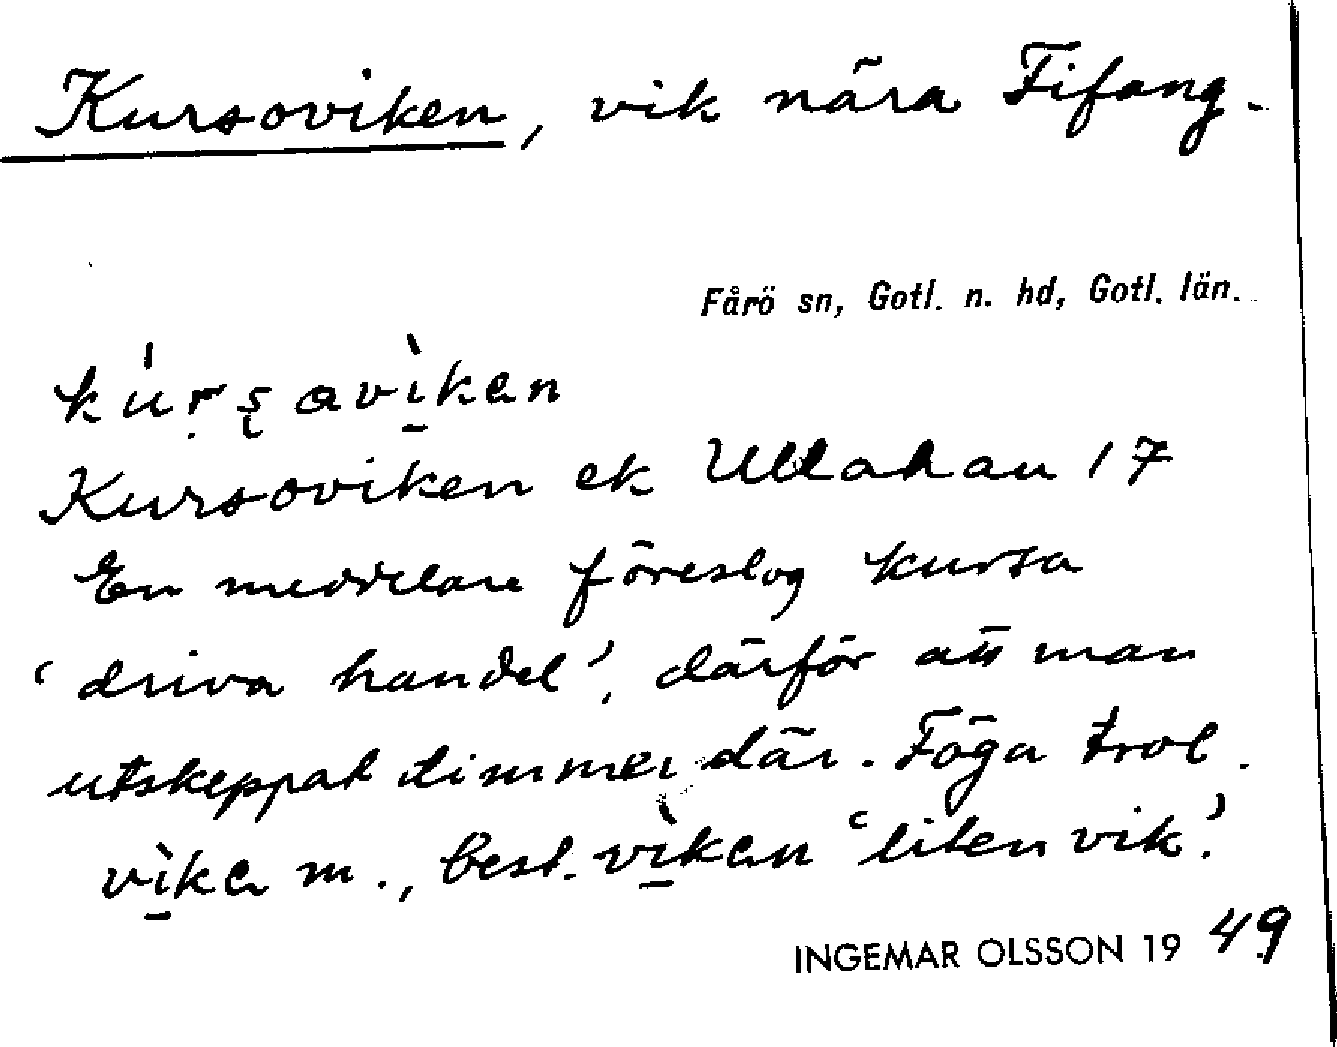 Kursoviken, vik nära Fifang.
Fårö sn, Gotl. n. hd, Gotl. län.
kúrṣavìkan
Kursoviken ek Ullahau 17
En meddelare föreslog kursa
‘driva handel’, därför att man
utskeppat timmer där. Föga trol.
vìka m., best. vìkan ‘liten vik’.
INGEMAR OLSSON 1949